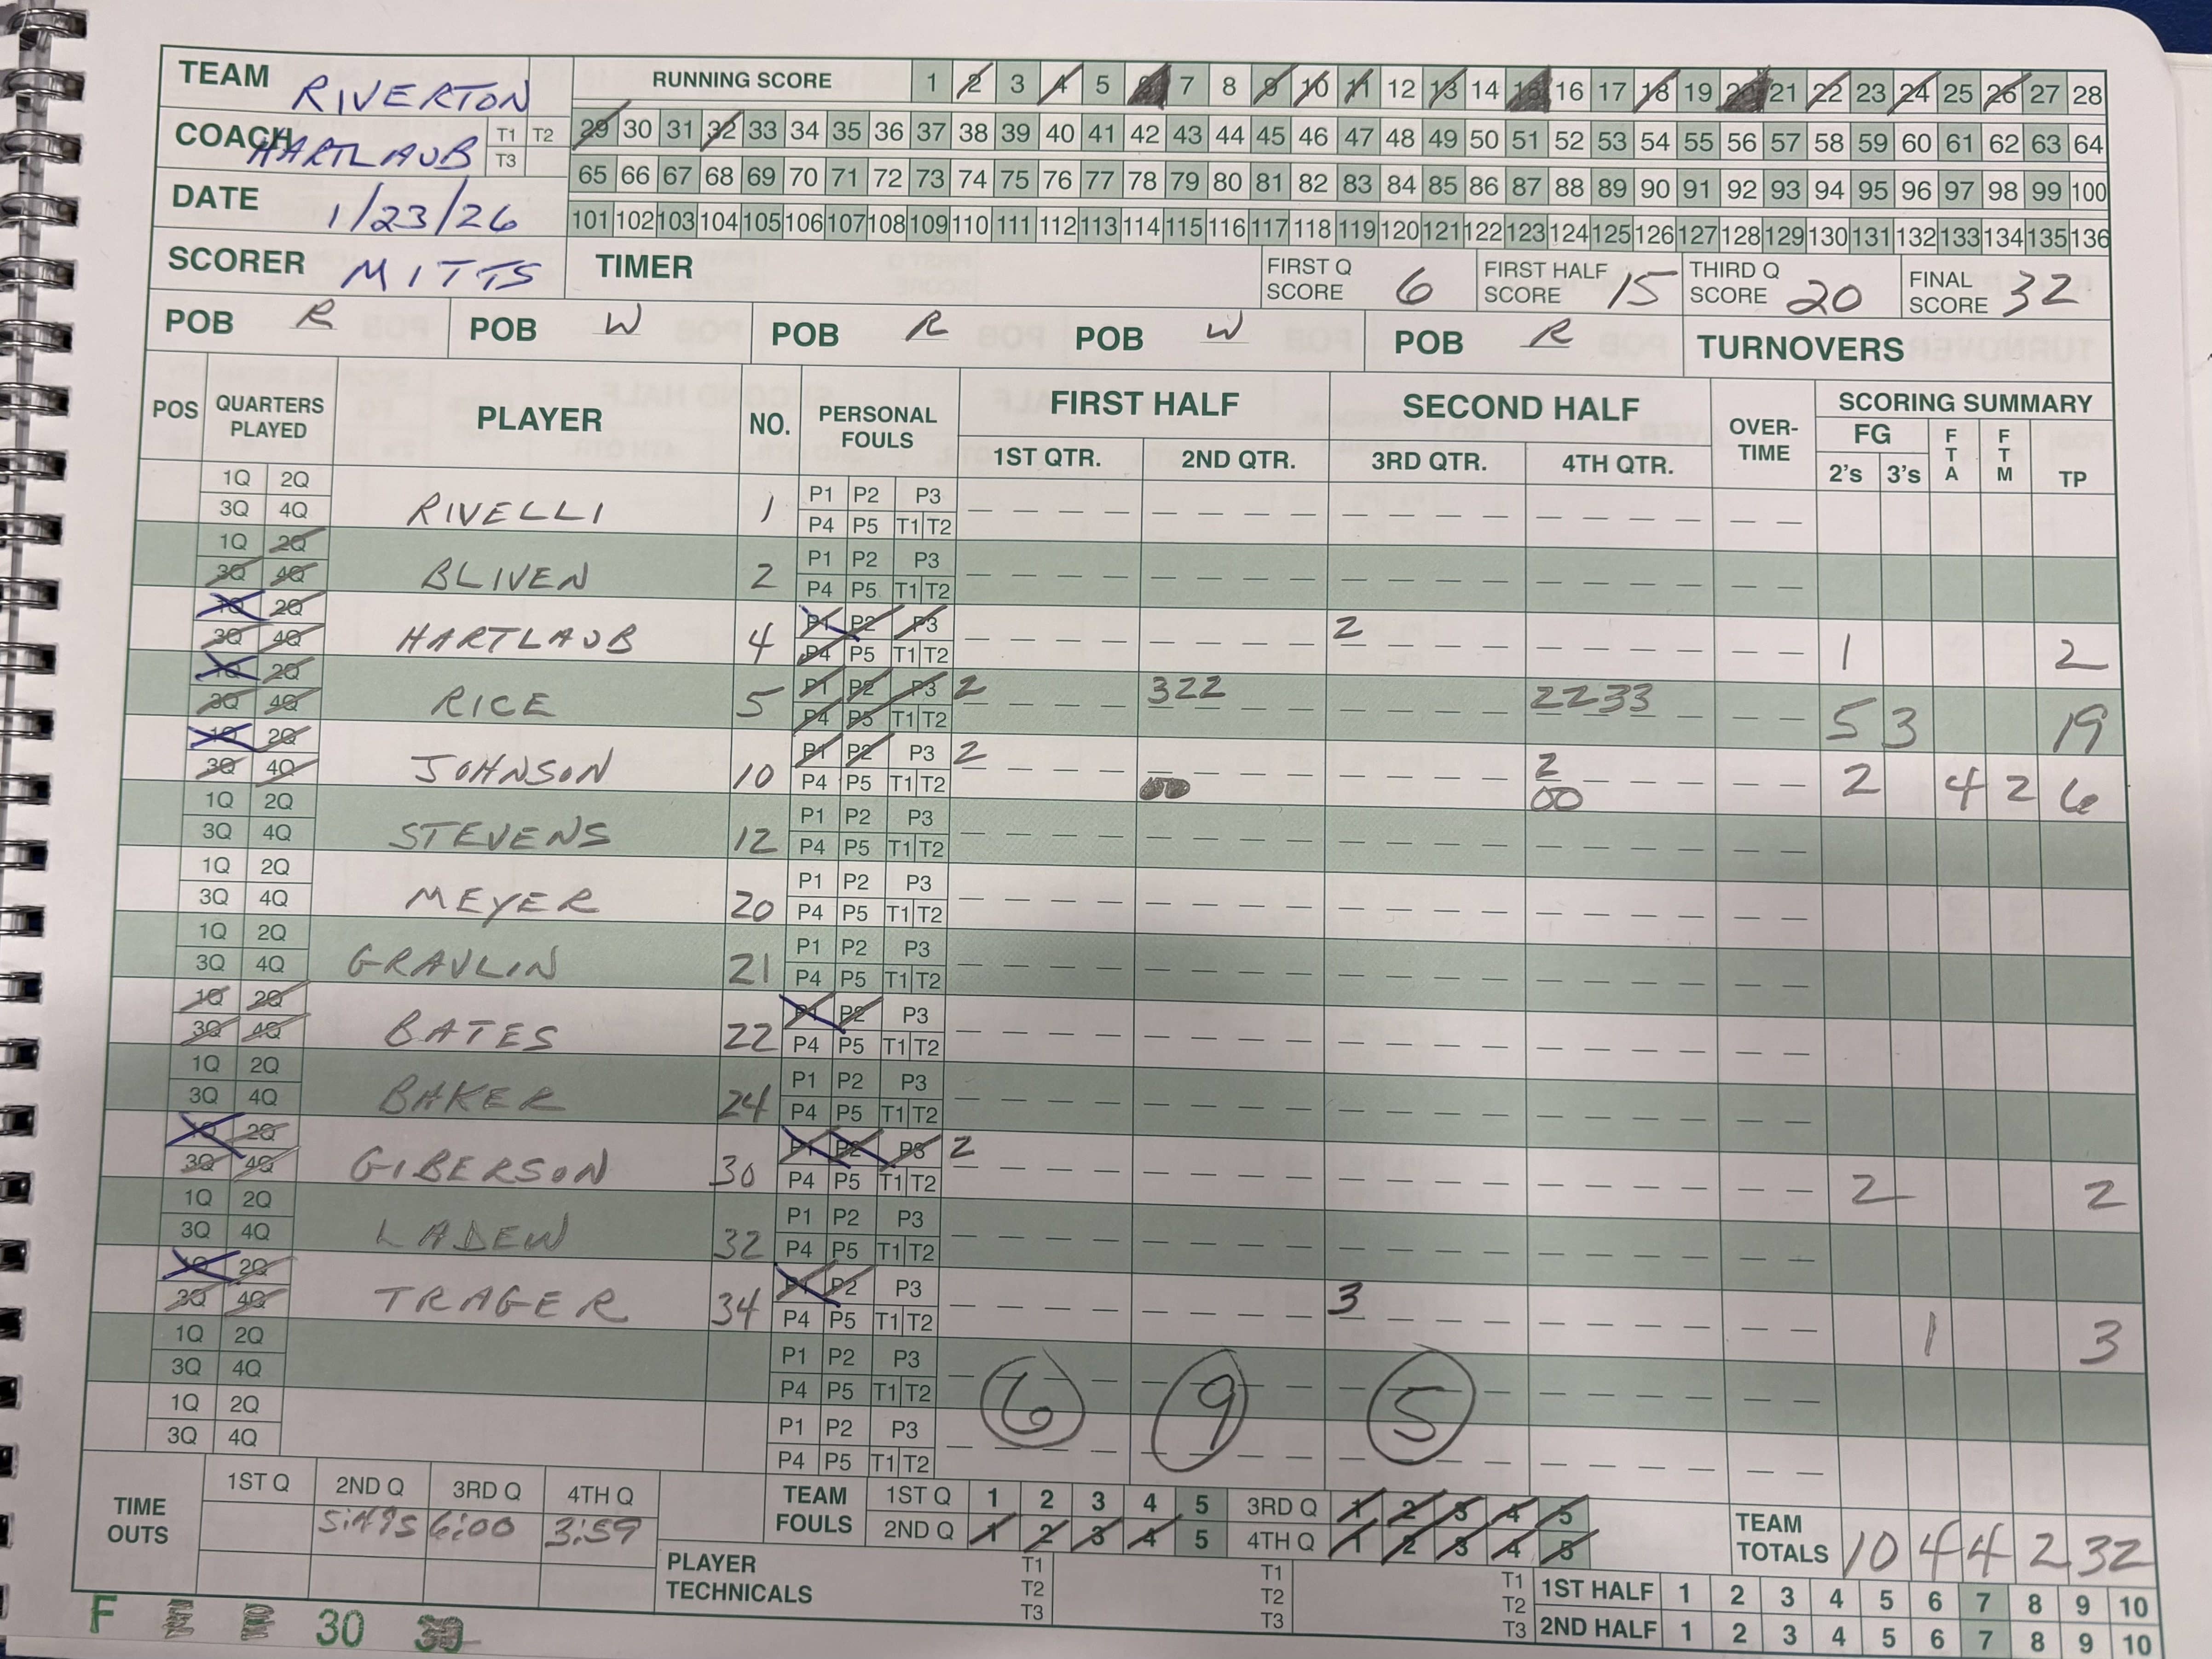 TEAM RIVERTON
RUNNING SCORE 1 2 3 4 5 6 7 8 9 10 11 12 13 14 15 16 17 18 19 20 21 22 23 24 25 26 27 28
COACH HARTLAUB T1 T2 T3
29 30 31 32 33 34 35 36 37 38 39 40 41 42 43 44 45 46 47 48 49 50 51 52 53 54 55 56 57 58 59 60 61 62 63 64
65 66 67 68 69 70 71 72 73 74 75 76 77 78 79 80 81 82 83 84 85 86 87 88 89 90 91 92 93 94 95 96 97 98 99 100
DATE 1/23/26
101 102 103 104 105 106 107 108 109 110 111 112 113 114 115 116 117 118 119 120 121 122 123 124 125 126 127 128 129 130 131 132 133 134 135 136
SCORER MITTS TIMER FIRST Q SCORE 6 FIRST HALF SCORE 15 THIRD Q SCORE 20 FINAL SCORE 32
POB R POB W POB R POB W POB R TURNOVERS
POS QUARTERS PLAYED PLAYER NO. PERSONAL FOULS FIRST HALF SECOND HALF OVER-TIME SCORING SUMMARY
1ST QTR. 2ND QTR. 3RD QTR. 4TH QTR. FG 2's 3's FTA FTM TP
1Q 2Q P1 P2 P3
3Q 4Q RIVELLI 1 P4 P5 T1 T2
1Q 2Q P1 P2 P3
3Q 4Q BLIVEN 2 P4 P5 T1 T2
1Q 2Q P1 P2 P3 2
3Q 4Q HARTLAUB 4 P4 P5 T1 T2 1 2
1Q 2Q P1 P2 P3 2 322 2233
3Q 4Q RICE 5 P4 P5 T1 T2 5 3 19
1Q 2Q P1 P2 P3 2 2
3Q 4Q JOHNSON 10 P4 P5 T1 T2 00 2 4 2 6
1Q 2Q P1 P2 P3
3Q 4Q STEVENS 12 P4 P5 T1 T2
1Q 2Q P1 P2 P3
3Q 4Q MEYER 20 P4 P5 T1 T2
1Q 2Q P1 P2 P3
3Q 4Q GRAVLIN 21 P4 P5 T1 T2
1Q 2Q P1 P2 P3
3Q 4Q BATES 22 P4 P5 T1 T2
1Q 2Q P1 P2 P3
3Q 4Q BAKER 24 P4 P5 T1 T2
1Q 2Q P1 P2 P3 2
3Q 4Q GIBERSON 30 P4 P5 T1 T2 2 2
1Q 2Q P1 P2 P3
3Q 4Q LADEW 32 P4 P5 T1 T2
1Q 2Q P1 P2 P3 3
3Q 4Q TRAGER 34 P4 P5 T1 T2 1 3
1Q 2Q P1 P2 P3
3Q 4Q P4 P5 T1 T2 6 9 5
1Q 2Q P1 P2 P3
3Q 4Q P4 P5 T1 T2
TIME OUTS 1ST Q 2ND Q 3RD Q 4TH Q
6:00 3:59
TEAM FOULS 1ST Q 1 2 3 4 5 3RD Q 1 2 3 4 5
2ND Q 1 2 3 4 5 4TH Q 1 2 3 4 5
TEAM TOTALS 10 4 4 2 32
PLAYER TECHNICALS T1 T2 T3 T1 T2 T3 T1 T2 T3
1ST HALF 1 2 3 4 5 6 7 8 9 10
2ND HALF 1 2 3 4 5 6 7 8 9 10
F 30